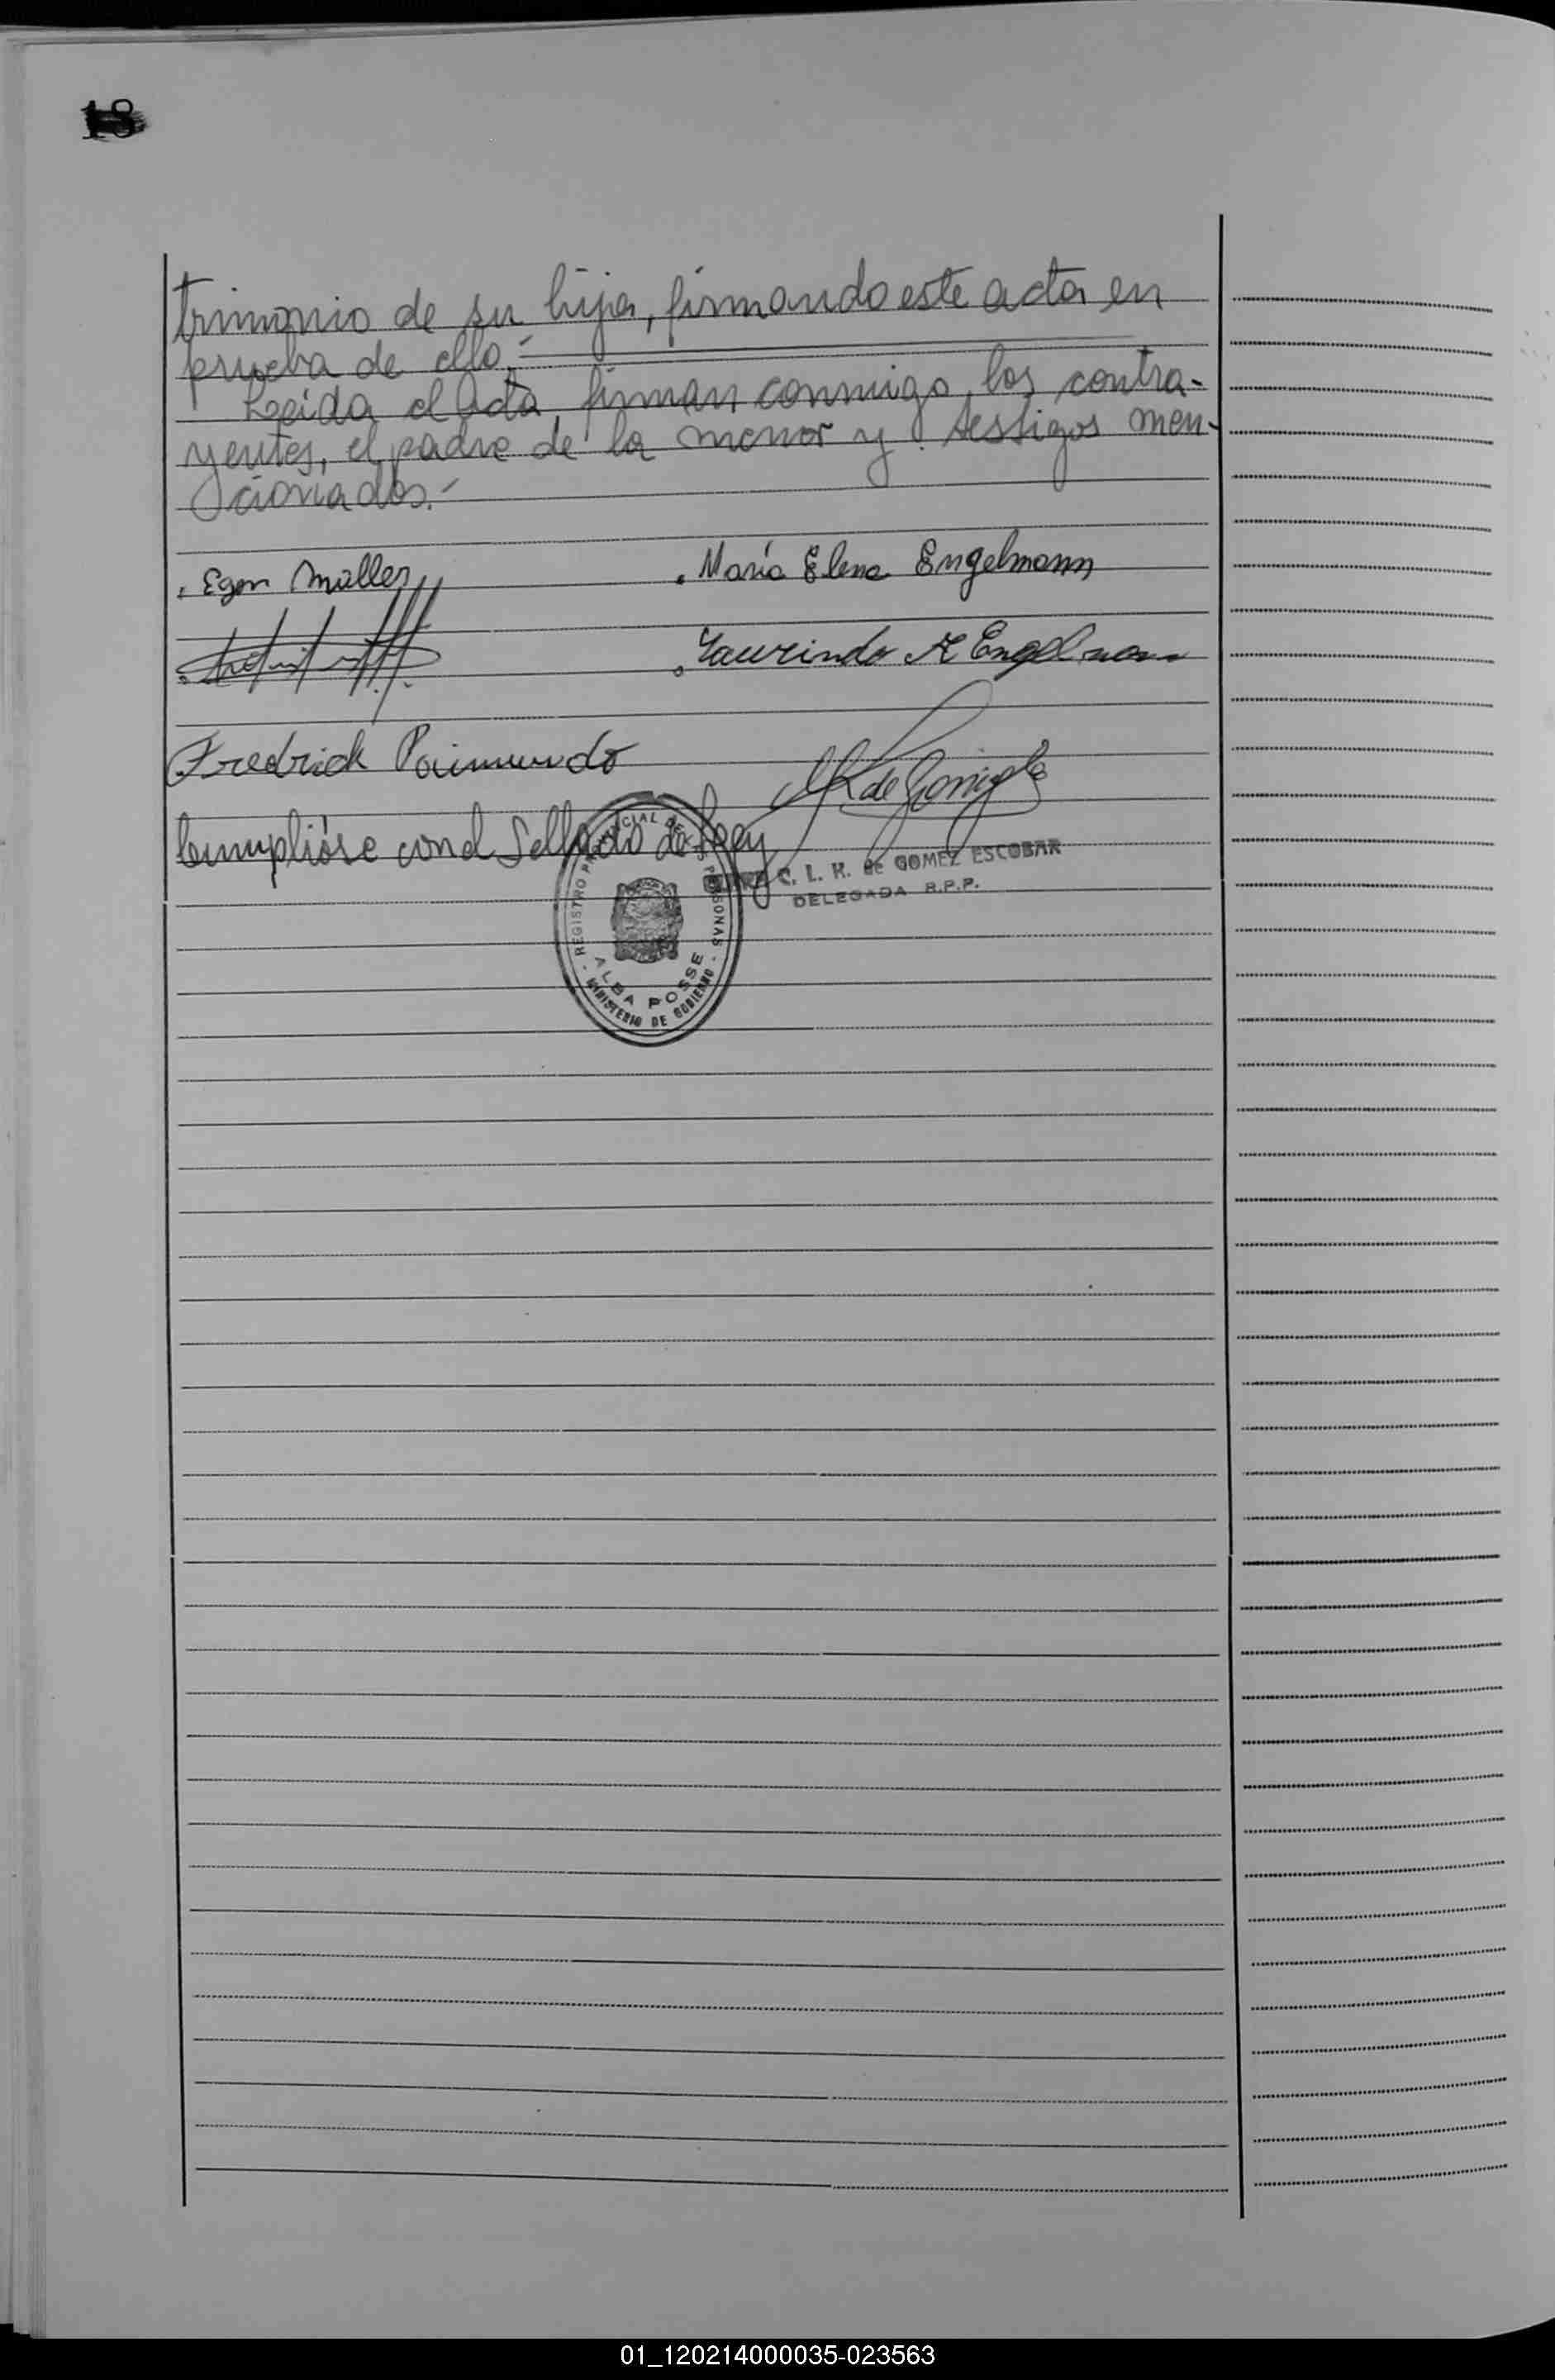 18
trimonio de su hija, firmando este acta en
prueba de ello.-
Leída el Acta, firman conmigo, los contra-
yentes, el padre de la menor y testigos men-
cionados.-
. Egon Müller
. María Elena Engelmann
. Laurindo A Engelmann
Fredrich Raimundo
Cumplióse con el Sellado de Ley
C. L. K. de GOMEZ ESCOBAR
DELEGADA R.P.P.
- REGISTRO PROVINCIAL DE LAS PERSONAS -
ALBA POSSE
MINISTERIO DE GOBIERNO
01_120214000035-023563